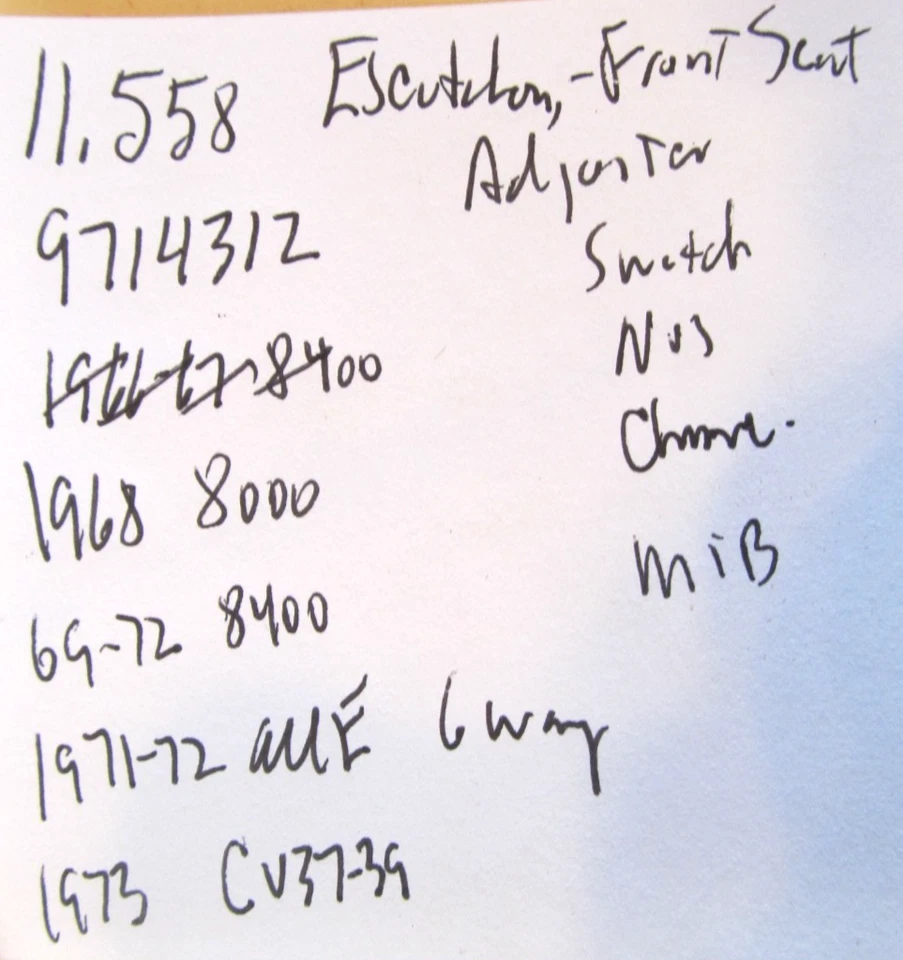 11.558 Escutcheon,-Front Seat
Adjuster
9714312
Switch
NOS
1968 8000
Chrome.
MIB
69-72 8400
1971-72 6 way
1973 CV37-39